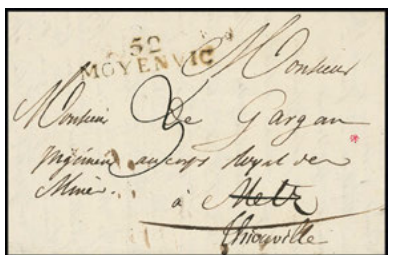 52
MOYENVIC
Monsieur
Monsieur De Gargan
3
Ingénieur au corps Royal des
Mines.
à Metz
thionville